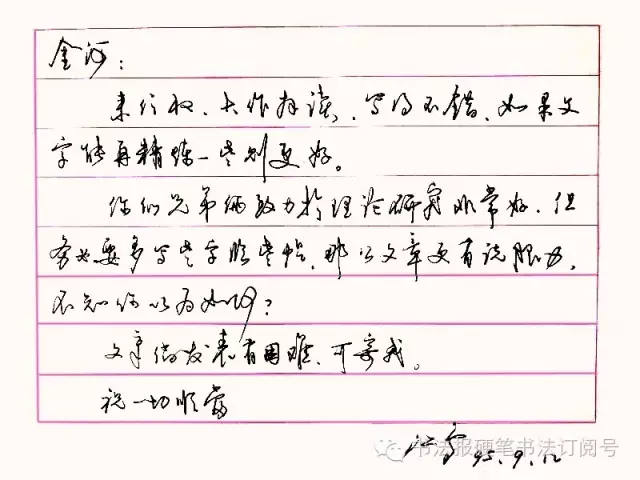 金河：
来信收、大作拜读、写得不错、如果文
字能再精炼一些则更好。
你们兄弟俩致力于理论研究非常好、但
务必要多写些字临些帖、那么文章更有说服力，
不知你以为如何？
文章倘发表有困难、可寄我。
祝一切顺当
95.9.12
书法报硬笔书法订阅号